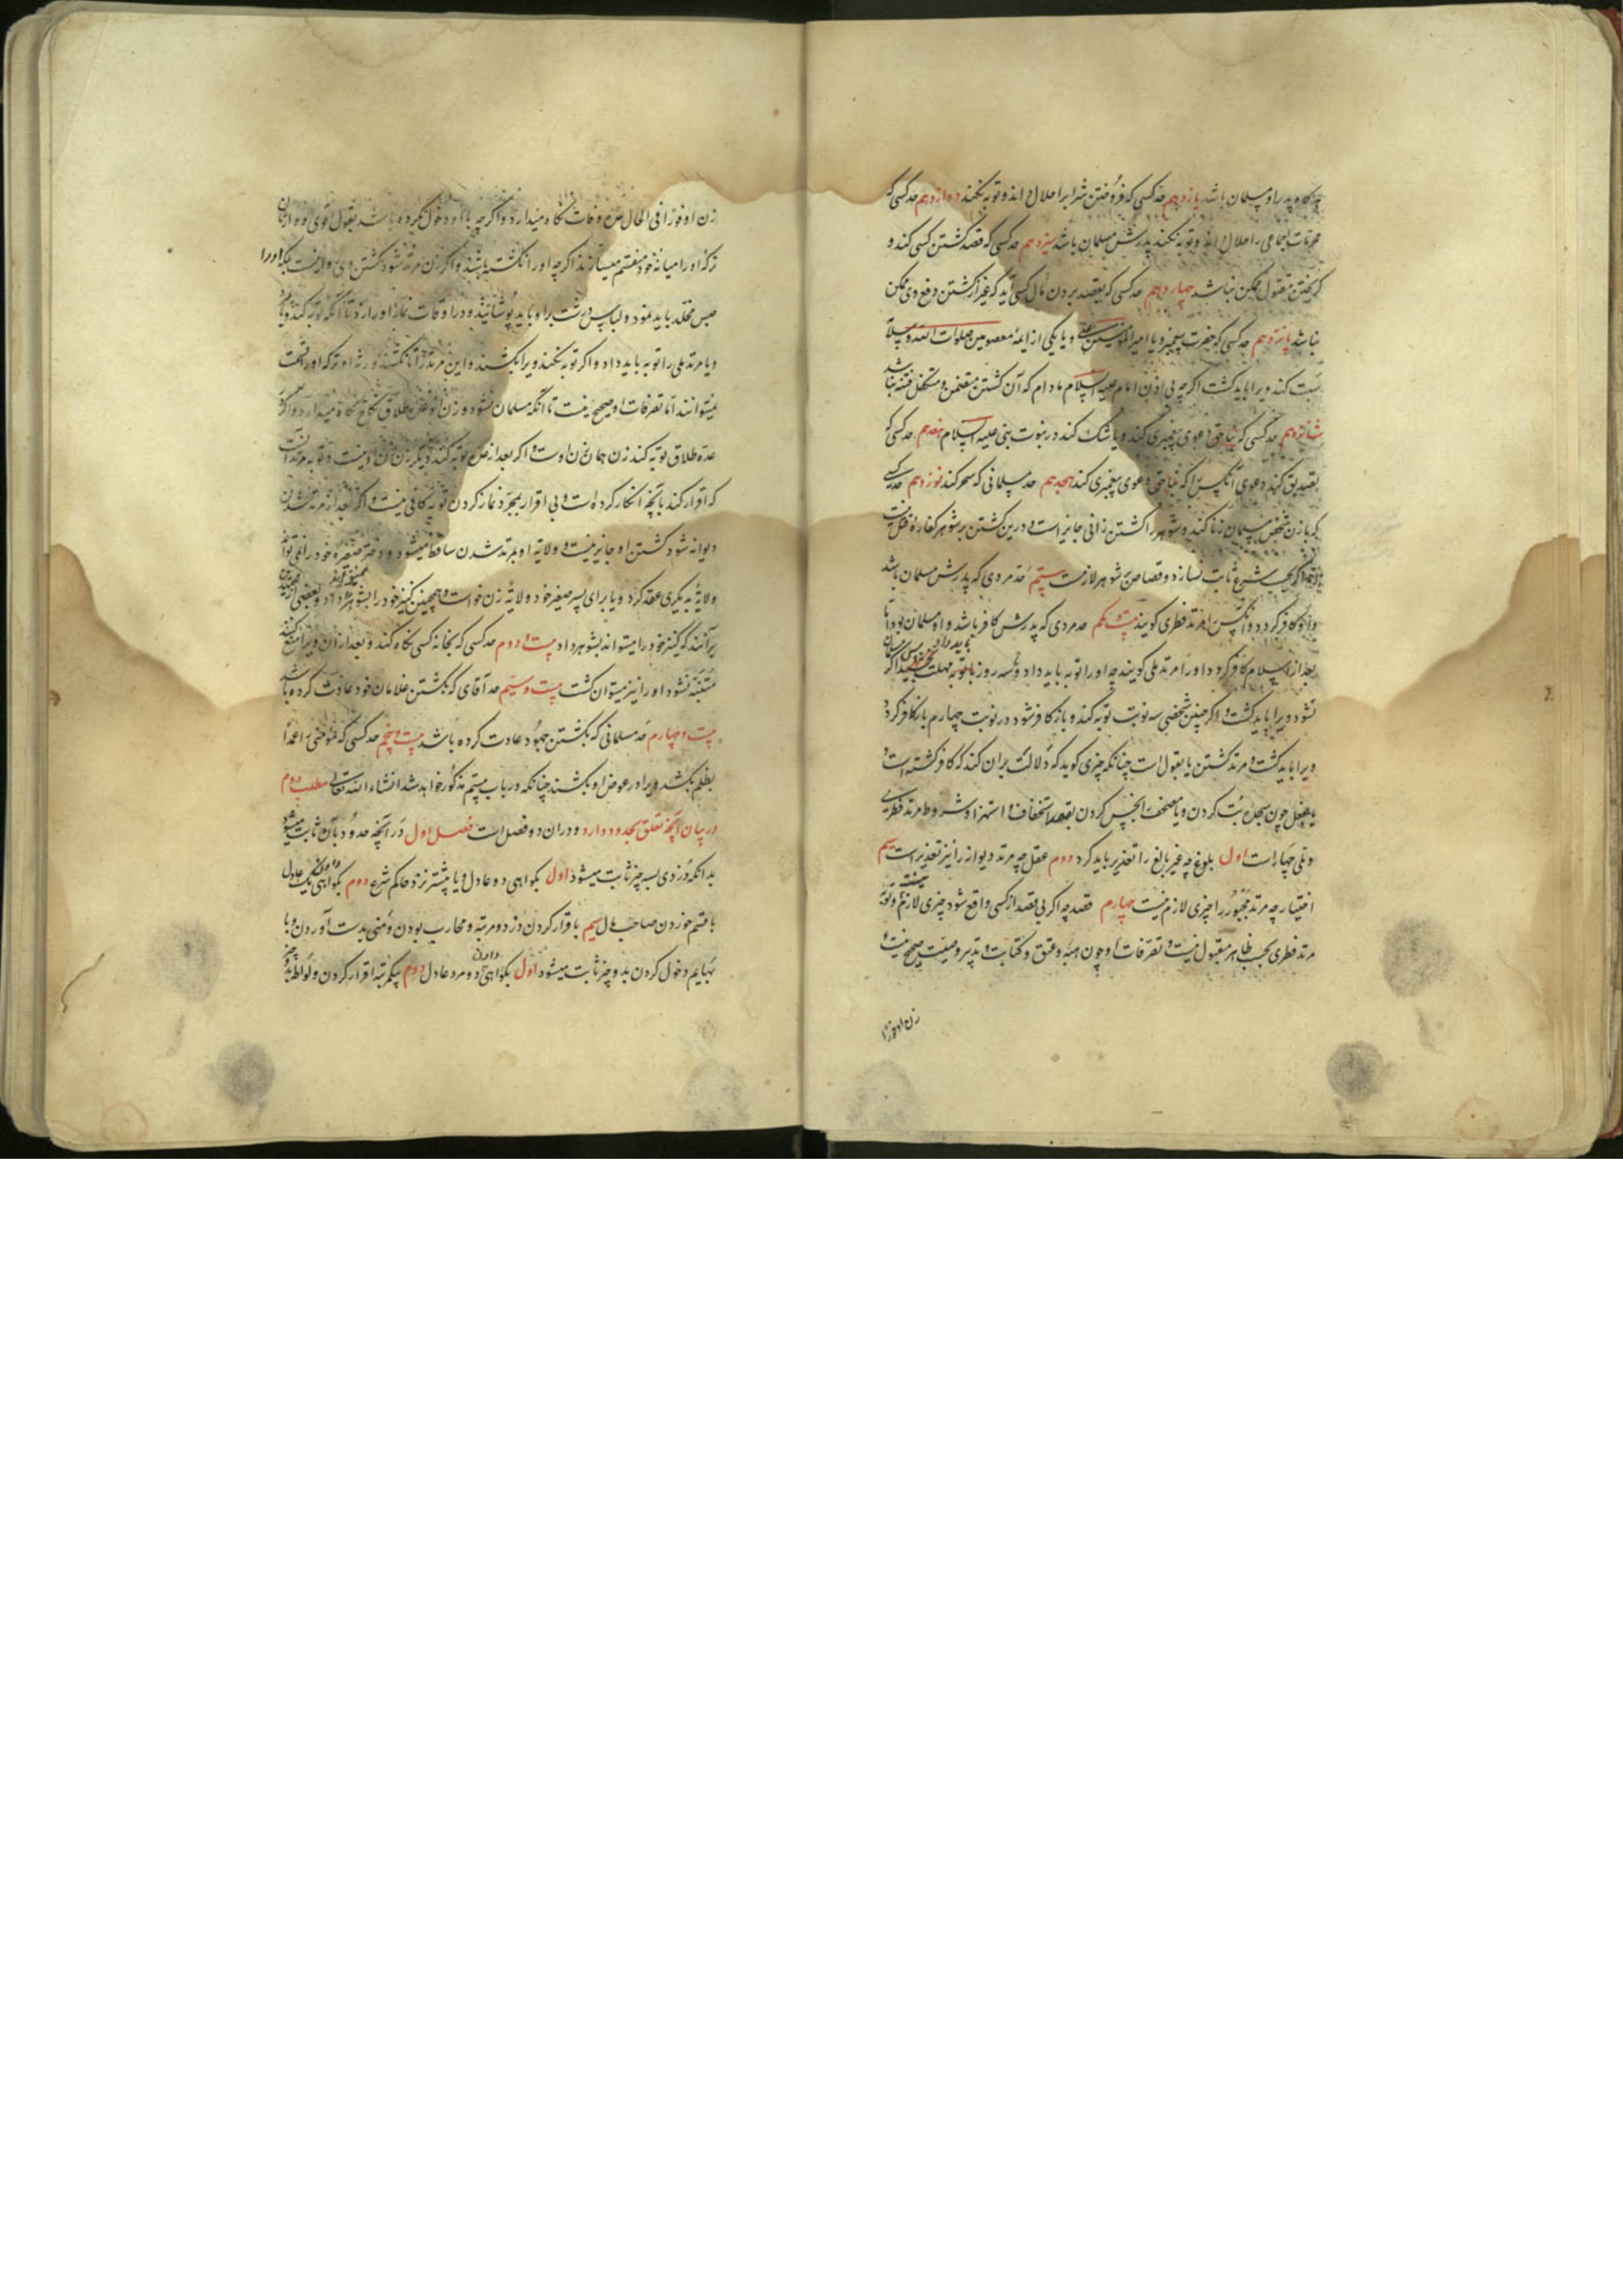 هرگاه پدر او مسلمان باشد یازدهم حد کسی که فروختن شراب را حلال داند و توبه نکند دوازدهم حد کسی که
محرمات اجماعی را حلال داند و توبه نکند و پدرش مسلمان باشد سیزدهم حد کسی که قصد کشتن کسی کند و
کریختن مقتول ممکن نباشد چهاردهم حد کسی که بقصد بردن مال کسی آید که غیر از کشتن دفع وی ممکن
نباشد پانزدهم حد کسی که حضرت پیغمبر و یا امیرالمؤمنین و یا یکی از ایمه معصومین صلوات الله
سبت کند ویرا باید کشت اکرچه بی اذن امام علیه السلام مادام که آن کشتن متضمن فتنه نباشد
شانزدهم حد کسی که بناحق دعوی پیغمبری کند و یا شک کند در نبوت نبی علیه السلام هفدهم حد کسی که
تصدیق کند دعوی آنکس را که بناحق دعوی پیغمبری کند هجدهم حد مسلمانی که سحر کند نوزدهم حد کسی
که با زن شخص مسلمان زنا کند و شوهر را کشتن زانی جایز است و درین کشتن بر شوهر کفاره قتل نیست
اما اکر بحسب شرع ثابت نسازد قصاص بر شوهر لازمست بیستم حد مردی که پدرش مسلمان باشد
و او کافر کردد و آنکس را مرتد فطری کویند بیست و یکم حد مردی که پدرش کافر باشد و او مسلمان بود اما
بعد از اسلام کافر کردد او را مرتد ملی کویند چه او را توبه باید داد و سه روز مهلت
نشود ویرا باید کشت و اکر چنین شخصی سه نوبت توبه کند و باز کافر شود در نوبت چهارم باز کافر کردد
ویرا باید کشت و مرتد کشتن یا بقول است چنانکه چیزی کوید که دلالت بران کند که کافر کشته است و
یا بفعل چون سجده بت کردن و یا مصحف را نجس کردن بقصد استخفاف و استهزا و شروط مرتد فطری
و ملی چهار است اول بلوغ چه غیر بالغ را تعزیر باید کرد دوم عقل چه مرتد دیوانه را نیز تعزیر است سیم
اختیار چه مرتد مجبور را چیزی لازم نیست چهارم قصد چه اکر بی قصد از کسی واقع شود چیزی لازم نیست و توبه
مرتد فطری بحسب ظاهر مقبول نیست و تصرفات او چون هبه و عتق و کتابت و تدبیر و وصیت صحیح نیست و
زن او فورًا
زن او فورًا فی الحال عده وفات نکاه میدارد و اکرچه با او دخول نکرده باشد بقول اقوی و وارثان
ترکه او را میانه خود منقسم میسازند اکرچه او را نکشته باشند و اکر زن مرتد شود کشتن وی روا نیست بلکه او را
حبس مخلد باید نمود و لباس درشت بر او باید پوشانید و در اوقات نماز او را زد تا آنکه توبه کند و یا بمیرد
و یا مرتد ملی را توبه باید داد و اکر توبه نکند ویرا بکشند و این مرتد را تا نکشند ورثه او ترکه او را قسمت
نمیتوانند اما تصرفات او صحیح نیست تا آنکه مسلمان نشود و زن او عده طلاق نکاه میدارد و اکر در
عده طلاق توبه کند زن همان زن اوست و اکر بعد از عده توبه کند دیکر زن زن او نیست و توبه مرتد آنست
که اقرار کند بآنچه انکار کرده است و بی اقرار بمجرد نماز کردن توبه کافی نیست و اکر بعد از مرتد شدن
دیوانه شود کشتن او جایز نیست و ولایة او بمرتد شدن ساقط میشود و دختر صغیره خود را نمی تواند
ولایة بدیکری عقد کرد و یا برای پسر صغیر خود ولایة زن خواست و همچنین کنیز خود را بشوهر داد و بعضی از مجتهدین
برآنند که کنیز خود را میتواند بشوهر داد بیست و دوم حد کسی که بخانه کسی نکاه کند و بعد از ان ویرا منع کنند
متنبه نشود او را نیز میتوان کشت بیست و سیم حد آقای که بکشتن غلامان خود عادت کرده باشد
بیست و چهارم حد مسلمانی که بکشتن جهود عادت کرده باشد بیست و پنجم حد کسی که شخصی را عمدًا
بظلم بکشد ویرا در عوض او بکشند چنانکه در باب بیستم مذکور خواهد شد انشاء الله تعالی مطلب دوم
در بیان آنچه تعلق بحدود دارد و دران دو فصل است فصل اول در آنچه حدود بآن ثابت میشود
بدانکه دزدی بسه چیز ثابت میشود اول بکواهی دو عادل و یا بیشتر نزد حاکم شرع دوم بکواهی یک عادل
با قسم خوردن صاحب مال سیم باقرار کردن دزد دو مرتبه و محارب بودن و منی بدست آوردن و با
بهایم دخول کردن بدو چیز ثابت میشود اول بکواهی دادن دو مرد عادل دوم یکمرتبه اقرار کردن و لواط بدو چیز